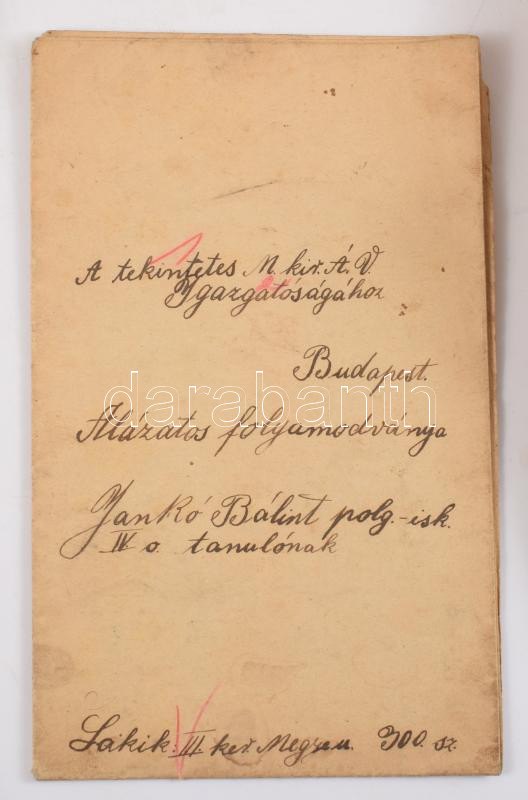 A tekintetes M. kir. Á. V.
Igazgatóságához
Budapest.
darabanth
Alázatos folyamodványa
Jankó Bálint polg.-isk.
IV o. tanulónak
Lakik: III. ker. 300. sz.